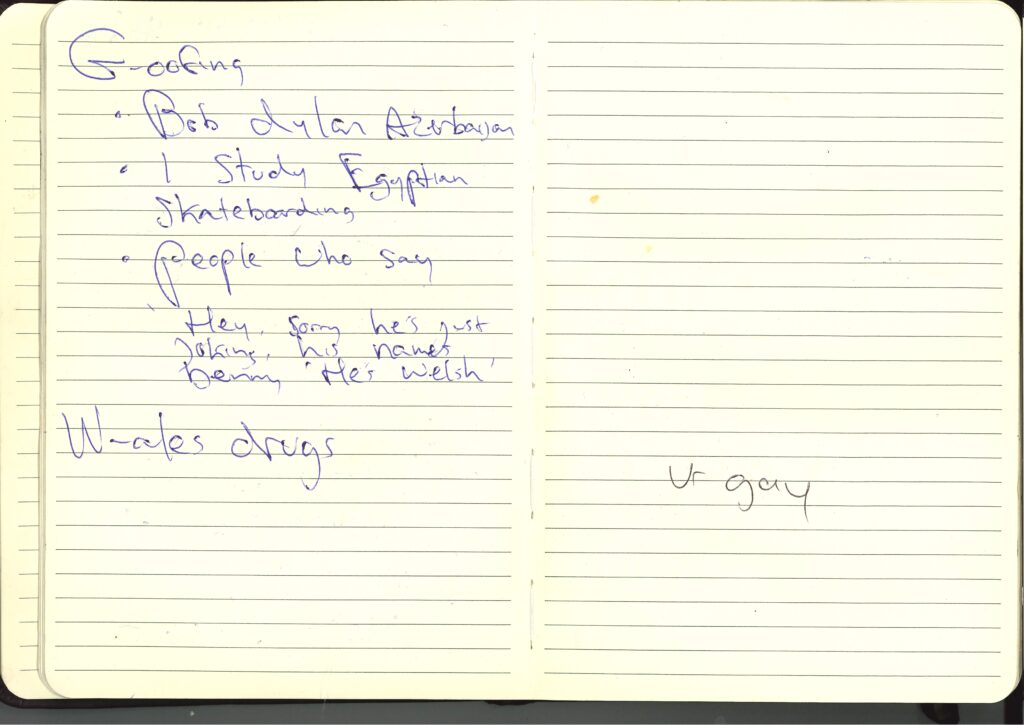 G-ooking
• Bob dylan Azerbaijan
• I Study Egyptian
Skateboarding
• People who say
"Hey, sorry he's just
joking, his names
Denny, 'He's Welsh'
W-ales drugs
Ur gay